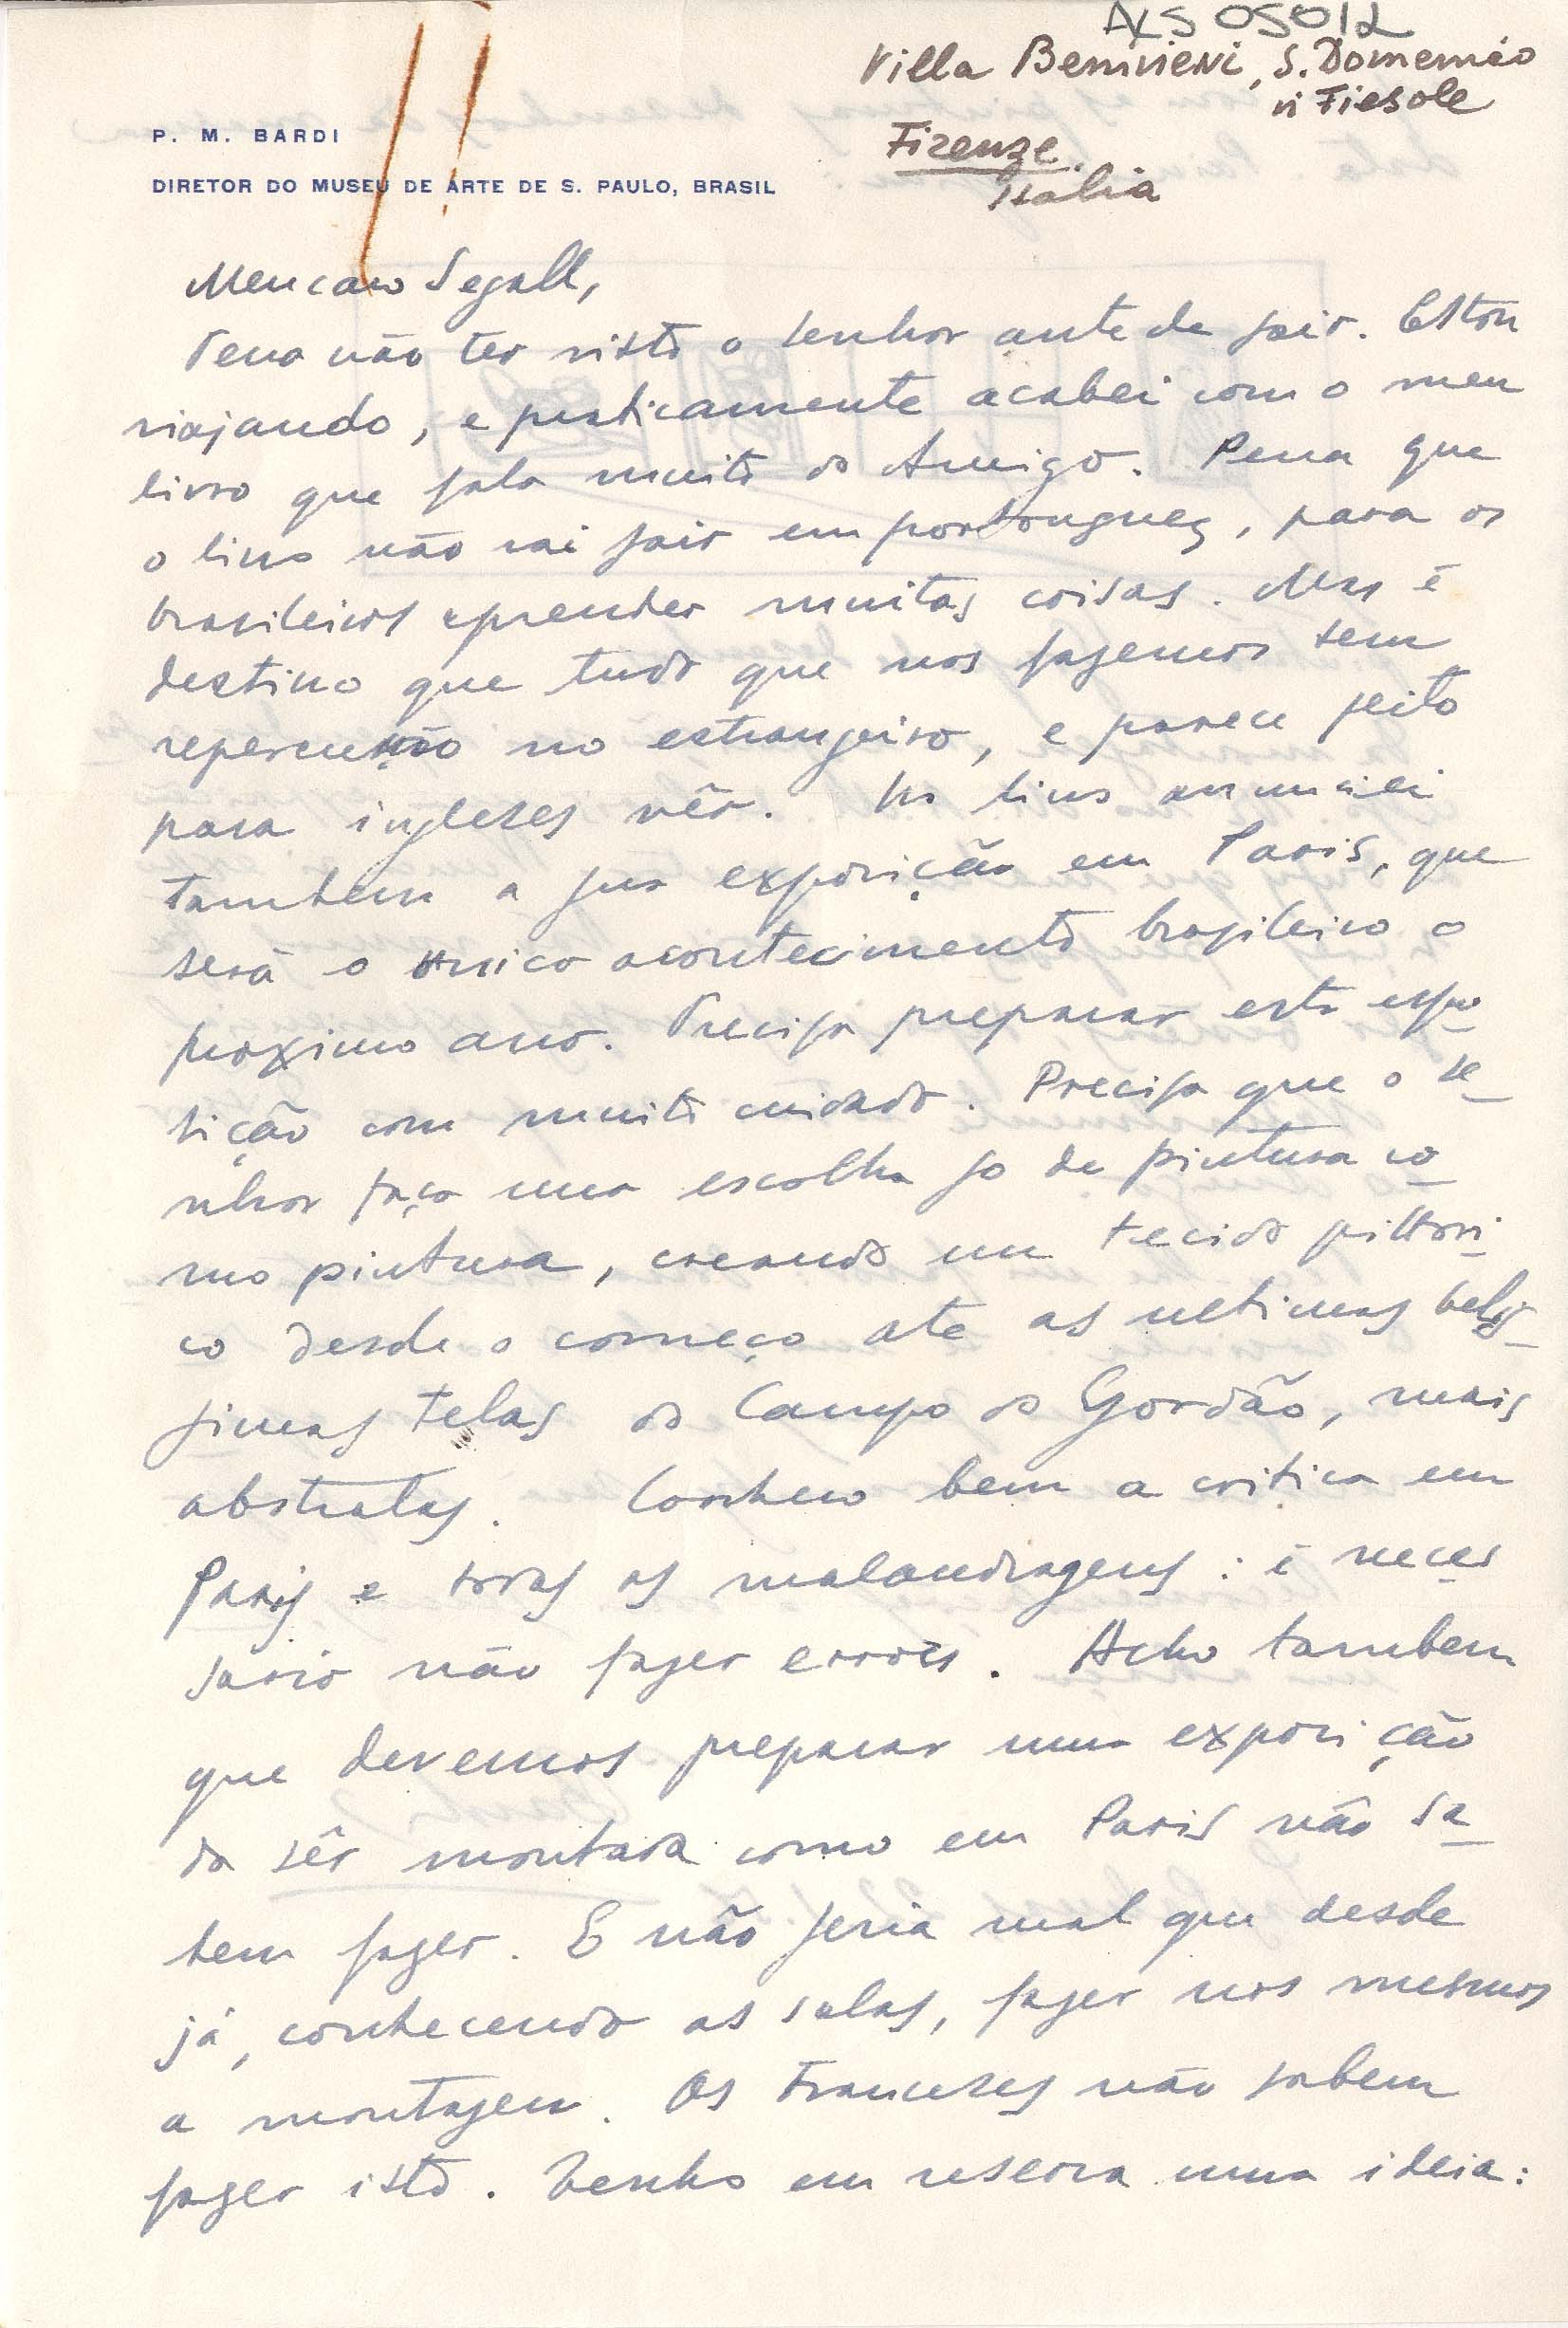 ALS 05012
Villa Benivieni, S. Domenico
di Fiesole
Firenze
Italia
P. M. BARDI
DIRETOR DO MUSEU DE ARTE DE S. PAULO, BRASIL
Meu caro Segall,
Pena não ter visto o senhor ante de sair. Estou
viajando, e praticamente acabei com o meu
livro que fala muito do Amigo. Pena que
o livro não vai sair em portouguez, para os
brasileiros aprender muitas coisas. Mas é
destino que tudo que nos fazemos tem
repercussão no estrangeiro, e parece feito
para ingleses vêr. No livro anunciei
tambem a sua exposição em Paris, que
será o unico acontecimento brasileiro o
proximo ano. Precisa preparar esta expo
sição com muito cuidado. Precisa que o se
nhor faça uma escolha so de pintura co
mo pintura, creando um tecido pittori
co desde o começo ate as ultimas belis
simas telas do Campo do Gordão, mais
abstratas. Conheço bem a critica em
Paris e todas as malandragens: é neces
sario não fazer errores. Acho tambem
que devemos preparar uma exposição
da sêr montada como em Paris não sa
bem fazer. E não seria mal que desde
já, conhecendo as salas, fazer nos mesmos
a montagem. Os Franceses não sabem
fazer isto. Tenho em reserva uma ideia: